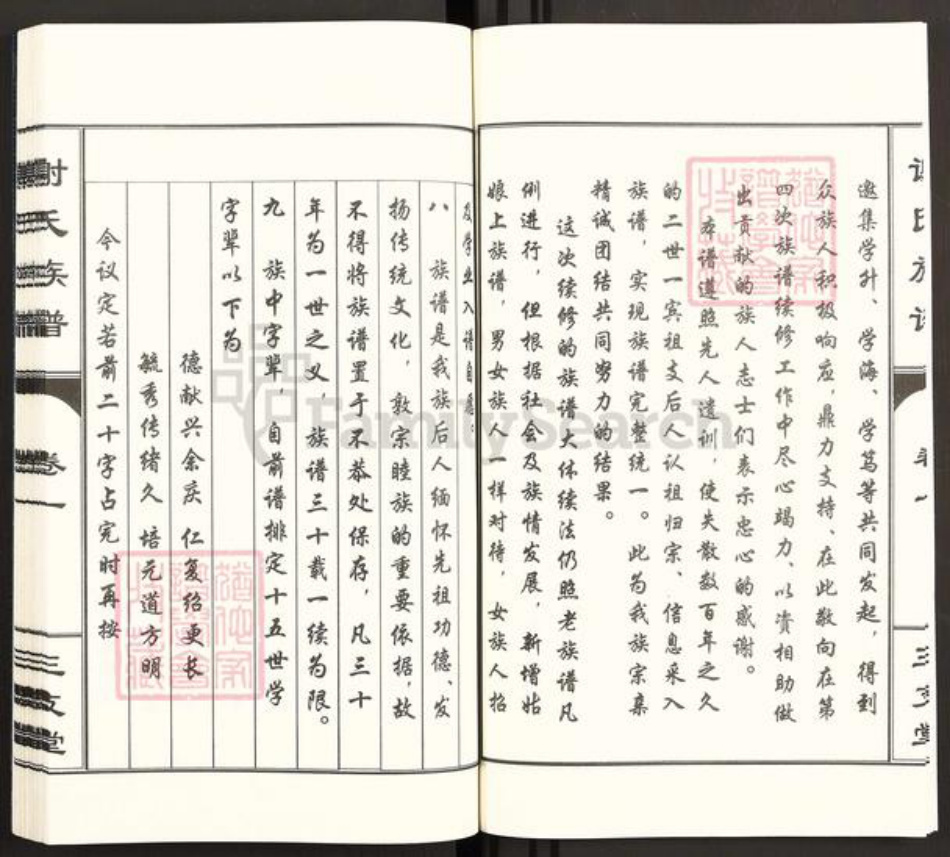 邀集学升、学海、学笃等共同发起，得到
众族人积极响应，鼎力支持、在此敬向在第
四次族谱续修工作中尽心竭力、以资相助做
出贡献的族人志士们表示忠心的感谢。
本谱遵照先人遗训，使失散数百年之久
的二世一宾祖支后人认祖归宗、信息采入
族谱，实现族谱完整统一。此为我族宗亲
精诚团结共同努力的结果。
这次续修的族谱大体续法仍照老族谱凡
例进行，但根据社会及族情发展，新增姑
娘上族谱，男女族人一样对待，女族人招
及学业入谱自愿；
八 族谱是我族后人缅怀先祖功德、发
扬传统文化，敦宗睦族的重要依据，故
不得将族谱置于不恭处保存，凡三十
年为一世之义，族谱三十载一续为限。
九 族中字辈，自前谱排定十五世学
字辈以下为
德献兴余庆 仁复绍更长
毓秀传绪久 培元道方明
今议定若前二十字占完时再按
谢氏族谱
卷一
三友堂
FamilySearch